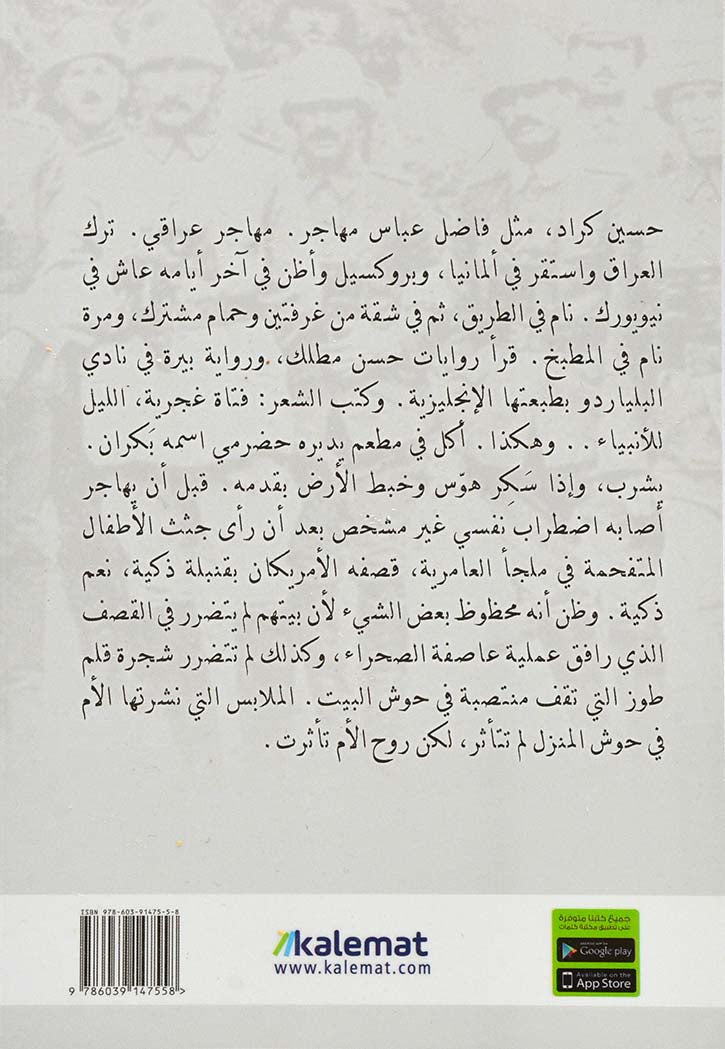 حسين كراد، مثل فاضل عباس مهاجر. مهاجر عراقي. ترك
العراق واستقر في ألمانيا، وبروكسيل وأظن في آخر أيامه عاش في
نيويورك. نام في الطريق، ثم في شقة من غرفتين وحمام مشترك، ومرة
نام في المطبخ. قرأ روايات حسن مطلك، ورواية بيرة في نادي
البلياردو بطبعتها الإنجليزية. وكتب الشعر: فتاة غجرية، الليل
للأنبياء .. وهكذا. أكل في مطعم يديره حضرمي اسمه بَكران.
يشرب، وإذا سَكِر هوّس وخبط الأرض بقدمه. قبل أن يهاجر
أصابه اضطراب نفسي غير مشخص بعد أن رأى جثث الأطفال
المتفحمة في ملجأ العامرية، قصفه الأمريكان بقنبلة ذكية، نعم
ذكية. وظن أنه محظوظ بعض الشيء لأن بيتهم لم يتضرر في القصف
الذي رافق عملية عاصفة الصحراء، وكذلك لم تتضرر شجرة قلم
طوز التي تقف منتصبة في حوش البيت. الملابس التي نشرتها الأم
في حوش المنزل لم تتأثر، لكن روح الأم تأثرت.
ISBN 978-603-91475-5-8
9 786039 147558>
kalemat
www.kalemat.com
جميع كتبنا متوفرة
على تطبيق مكتبة كلمات
ANDROID APP ON
Google play
Available on the
App Store